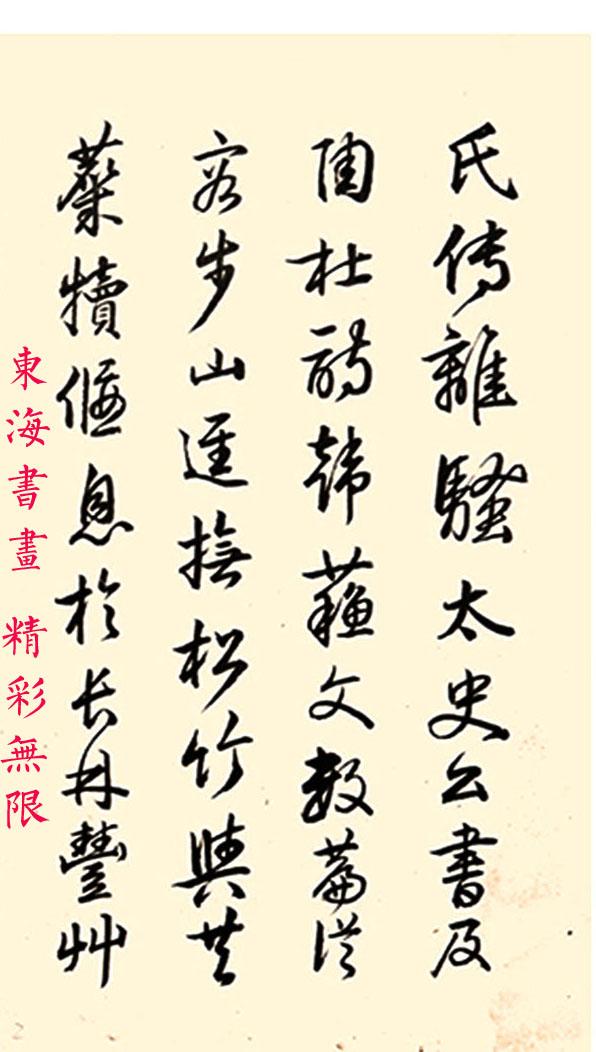 氏傳離騷太史公書及
陶杜詩韓蘇文數篇從
容步山逕撫松竹與共
麋犢偃息於長林豐艸
東海書畫 精彩無限